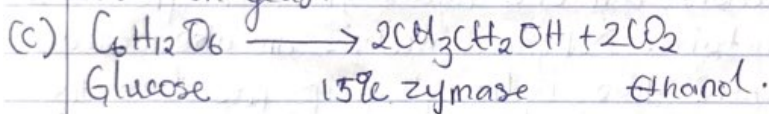 (C) C6H12O6 ⟶ 2CH3CH2OH + 2CO2
Glucose 15%c zymase Ethanol.